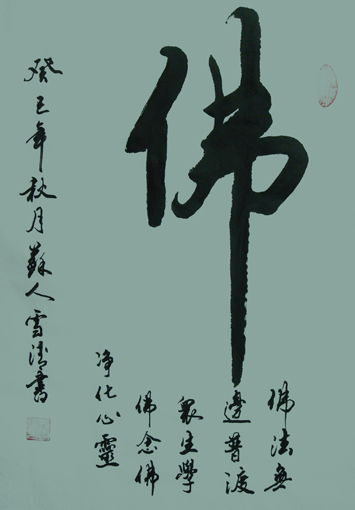 佛
佛法無
邊普渡
眾生學
佛念佛
净化心靈
癸巳年秋月蘇人雪清書